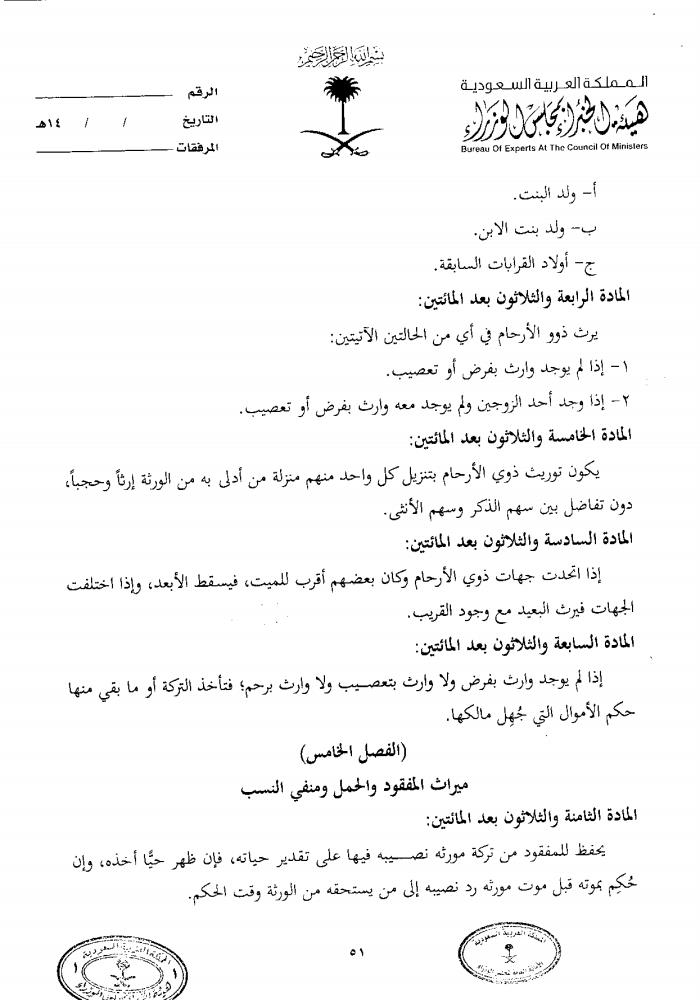 بسم الله الرحمن الرحيم
المملكة العربية السعودية
هيئة الخبراء بمجلس الوزراء
Bureau Of Experts At The Council Of Ministers
الرقم
التاريخ / / ١٤هـ
المرفقات
أ- ولد البنت.
ب- ولد بنت الابن.
ج- أولاد القرابات السابقة.
المادة الرابعة والثلاثون بعد المائتين:
يرث ذوو الأرحام في أي من الحالتين الآتيتين:
١- إذا لم يوجد وارث بفرض أو تعصيب.
٢- إذا وجد أحد الزوجين ولم يوجد معه وارث بفرض أو تعصيب.
المادة الخامسة والثلاثون بعد المائتين:
يكون توريث ذوي الأرحام بتنزيل كل واحد منهم منزلة من أدلى به من الورثة إرثاً وحجباً،
دون تفاضل بين سهم الذكر وسهم الأنثى.
المادة السادسة والثلاثون بعد المائتين:
إذا اتحدت جهات ذوي الأرحام وكان بعضهم أقرب للميت، فيسقط الأبعد، وإذا اختلفت
الجهات فيرث البعيد مع وجود القريب.
المادة السابعة والثلاثون بعد المائتين:
إذا لم يوجد وارث بفرض ولا وارث بتعصيب ولا وارث برحم؛ فتأخذ التركة أو ما بقي منها
حكم الأموال التي جُهِل مالكها.
(الفصل الخامس)
ميراث المفقود والحمل ومنفي النسب
المادة الثامنة والثلاثون بعد المائتين:
يحفظ للمفقود من تركة مورثه نصيبه فيها على تقدير حياته، فإن ظهر حيًّا أخذه، وإن
حُكِم بموته قبل موت مورثه رد نصيبه إلى من يستحقه من الورثة وقت الحكم.
٥١
المملكة العربية السعودية
المملكة العربية السعودية